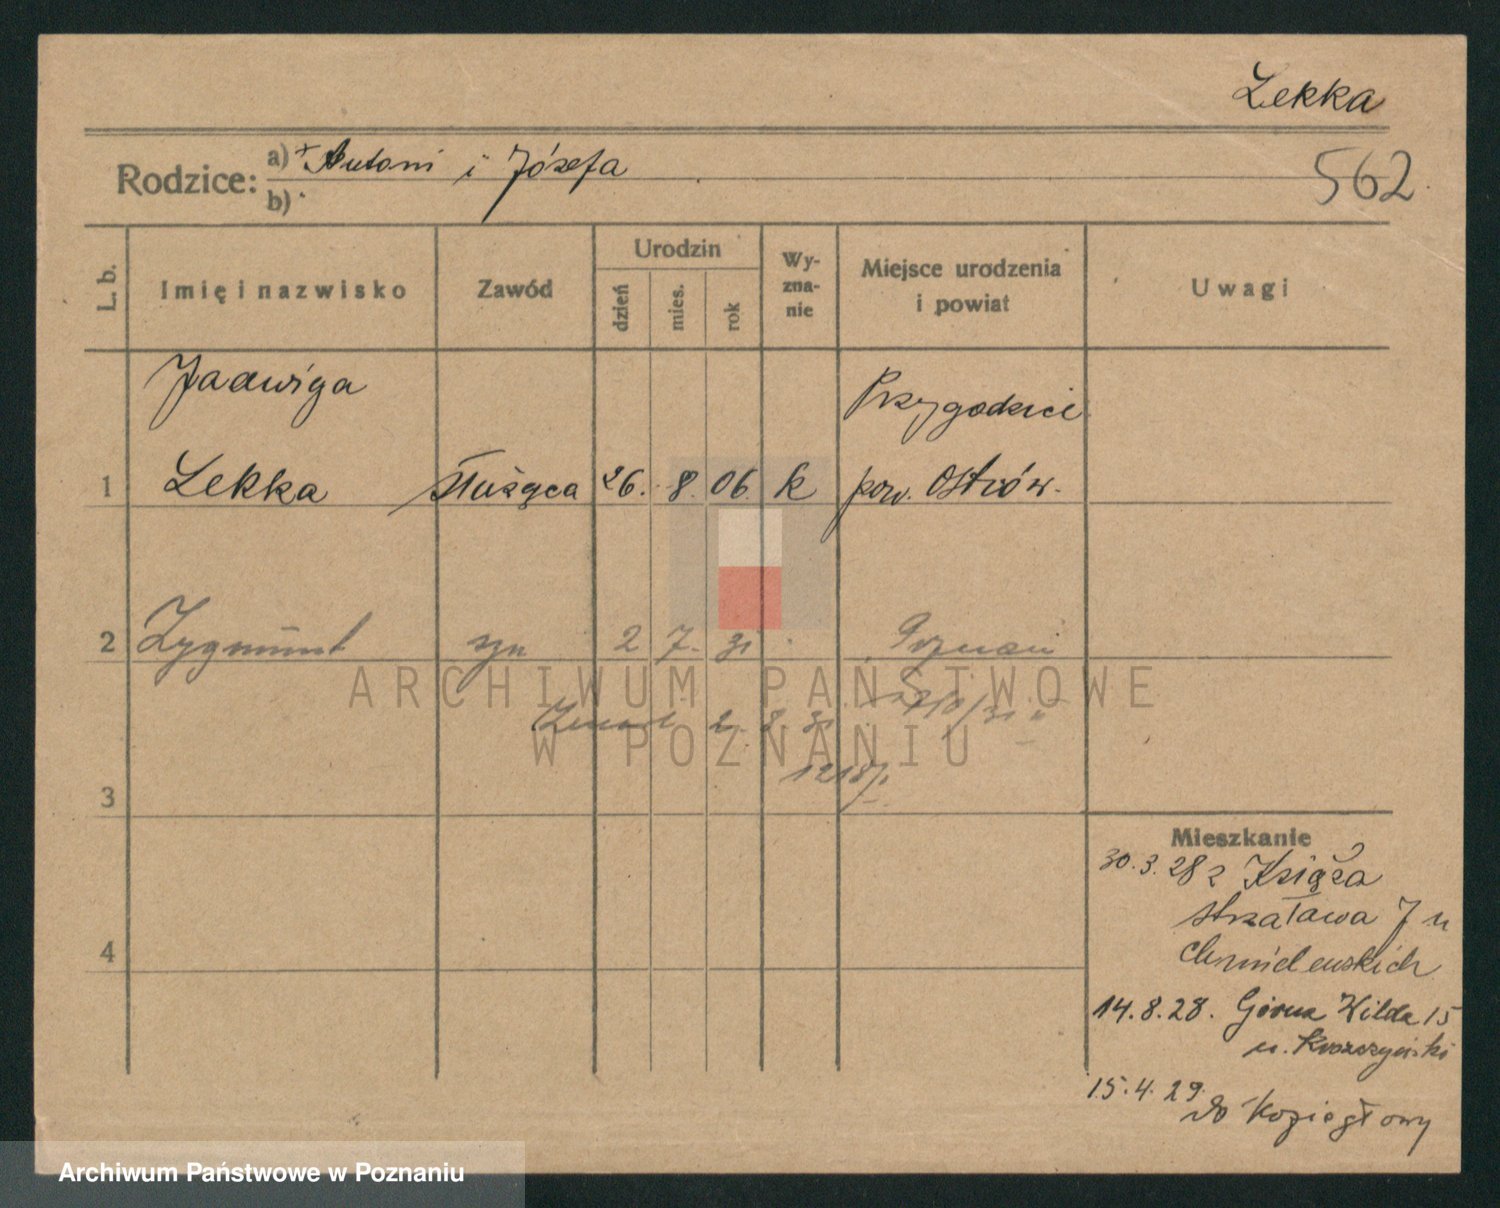 Lekka
Rodzice: a) + Antoni i Józefa
b)
562
L. b.
Imię i nazwisko
Zawód
Urodzin
dzień
mies.
rok
Wy-
zna-
nie
Miejsce urodzenia
i powiat
Uwagi
Jadwiga
Przygodzice
1 Lekka służąca 26. 8. 06 k pow. Ostrów.
2 Zygmunt syn 2 7. 31 Poznań
ARCHIWUM PAŃSTWOWE
Zmarł 2. 8. 31
W POZNANIU
1218/
3
4
Mieszkanie
30.3.28 z Książa
Strzałowa 7 u
Chmielewskich
14.8.28. Górna Wilda 15
u.
15.4.29.
do Koziegłowy
Archiwum Państwowe w Poznaniu